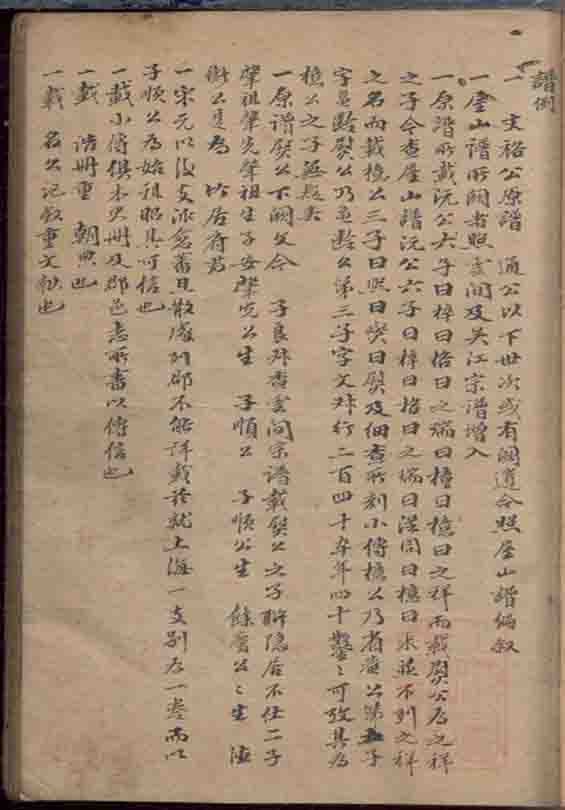 譜例
一 文裕公原譜 通公以下世次或有闕遺今照屋山譜編叙
一屋山譜所闕者照雲间及吴江宗譜增入
一原譜所載沅公六子曰梓曰格曰之瑞曰檀曰檍曰之祥而載熨公爲之祥
之子今查屋山譜沅公六子曰梓曰格曰之瑞曰 曰檍曰 並不列之祥
之名而載檍公三子曰 曰 曰熨及细查所刻小傳檍公乃省 公第五子
字 熨公乃 公第三子字文 行二百四十 年四十 可攷其爲
檍公之子無疑矣
一原譜熨公下闕文今 子良 查雲间宗譜載熨公之子 隐居不仕二子
肇祖肇先肇祖生子安肇先公生 子順公 子順公生 餘慶公公生 德
衡公是爲 始居府君
一宋元以後支派愈蕃且散處列郡不能詳載兹就上海一支别爲一卷而以
子順公爲始祖昭其可信也
一載小傳俱本史册及郡邑志所書以傳信也
一載 诰册重 朝典也
一載 名公記叙重文献也